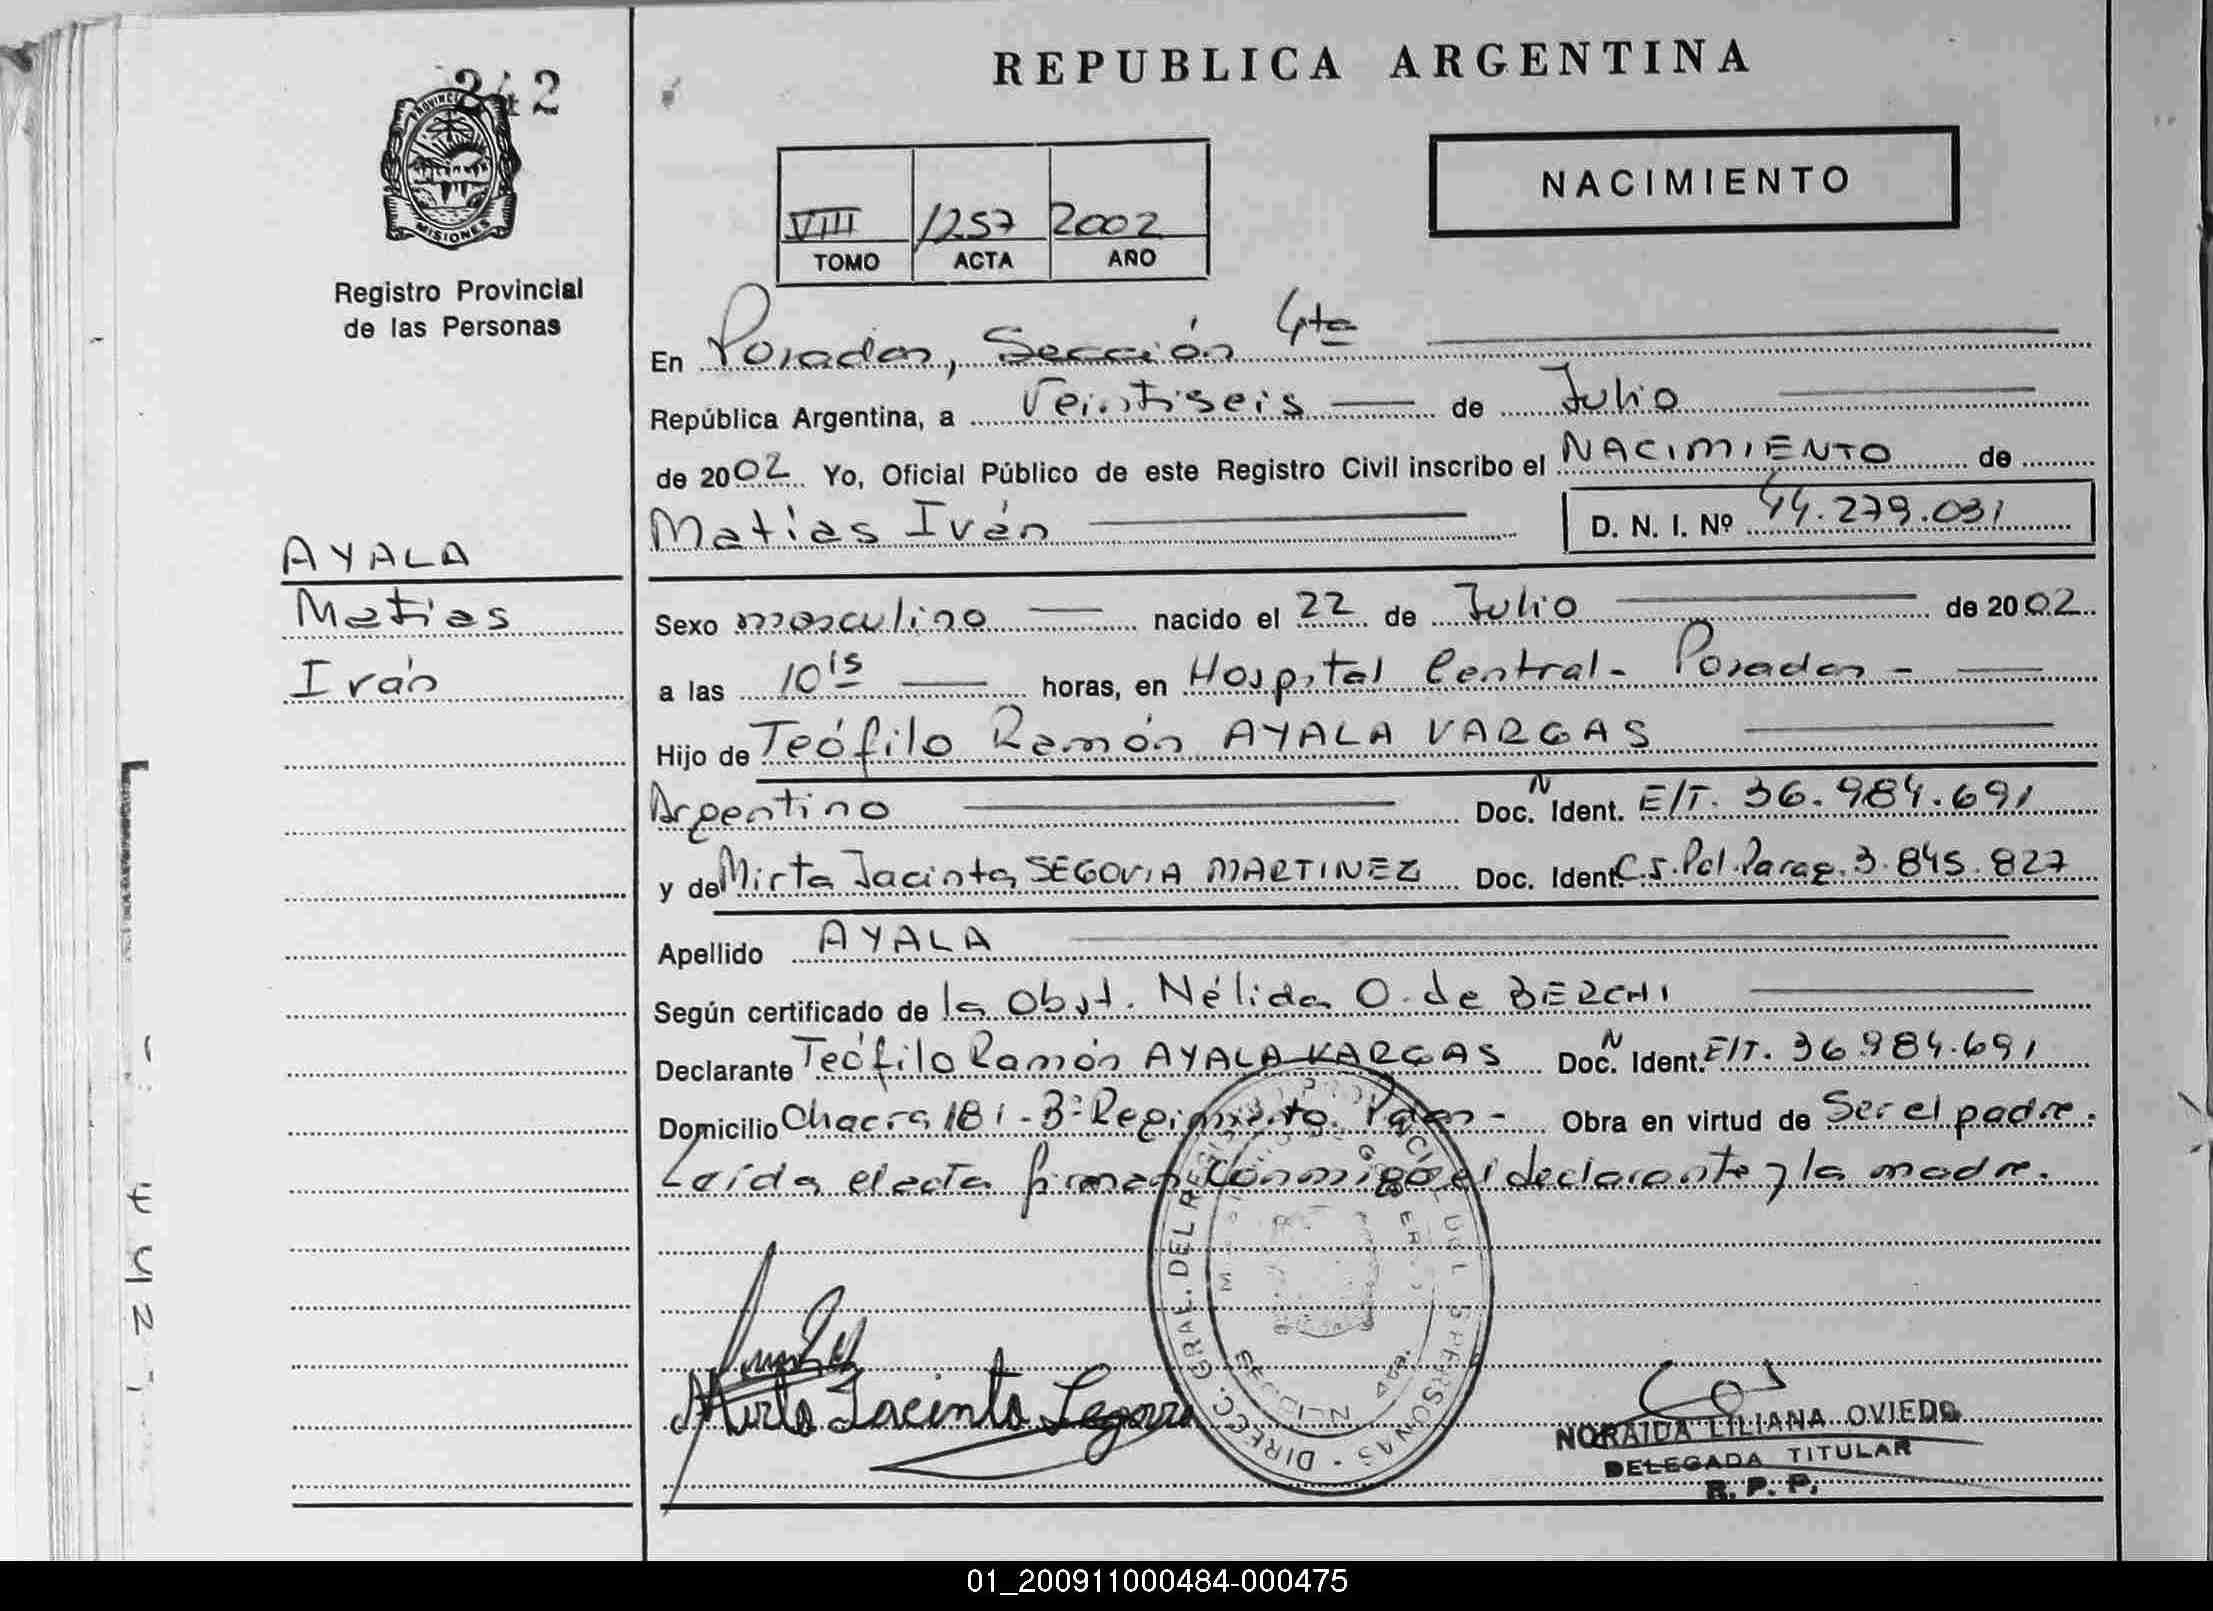 242
PROVINCIA
MISIONES
Registro Provincial
de las Personas
AYALA
Matias
Iván
REPUBLICA ARGENTINA
NACIMIENTO
VIII 1257 2002
TOMO ACTA AÑO
En Posadas, Sección 4ta
República Argentina, a Veintiseis de Julio
de 2002 Yo, Oficial Público de este Registro Civil inscribo el NACIMIENTO de
Matias Iván D. N. I. Nº 44.279.031
Sexo masculino nacido el 22 de Julio de 2002
a las 10 15 horas, en Hospital Central - Posadas -
Hijo de Teófilo Ramón AYALA VARGAS
Argentino Doc. N Ident. E/T. 36.984.691
y de Mirta Jacinta SEGOVIA MARTINEZ Doc. Ident. C.I. Pol. Parag. 3.845.827
Apellido AYALA
Según certificado de la Obst. Nélida O. de BERCHI
Declarante Teófilo Ramón AYALA VARGAS Doc. N Ident. E/T. 36.984.691
Domicilio Chacra 181 - 3º Regimiento. Pdas - Obra en virtud de Ser el padre.
Leída el acta firman conmigo el declarante y la madre.
Mirta Jacinta Segovia
DIRECC. GRAL. DEL PERSONAS
NORAIDA LILIANA OVIEDO
DELEGADA TITULAR
R. P. P.
01_200911000484-000475